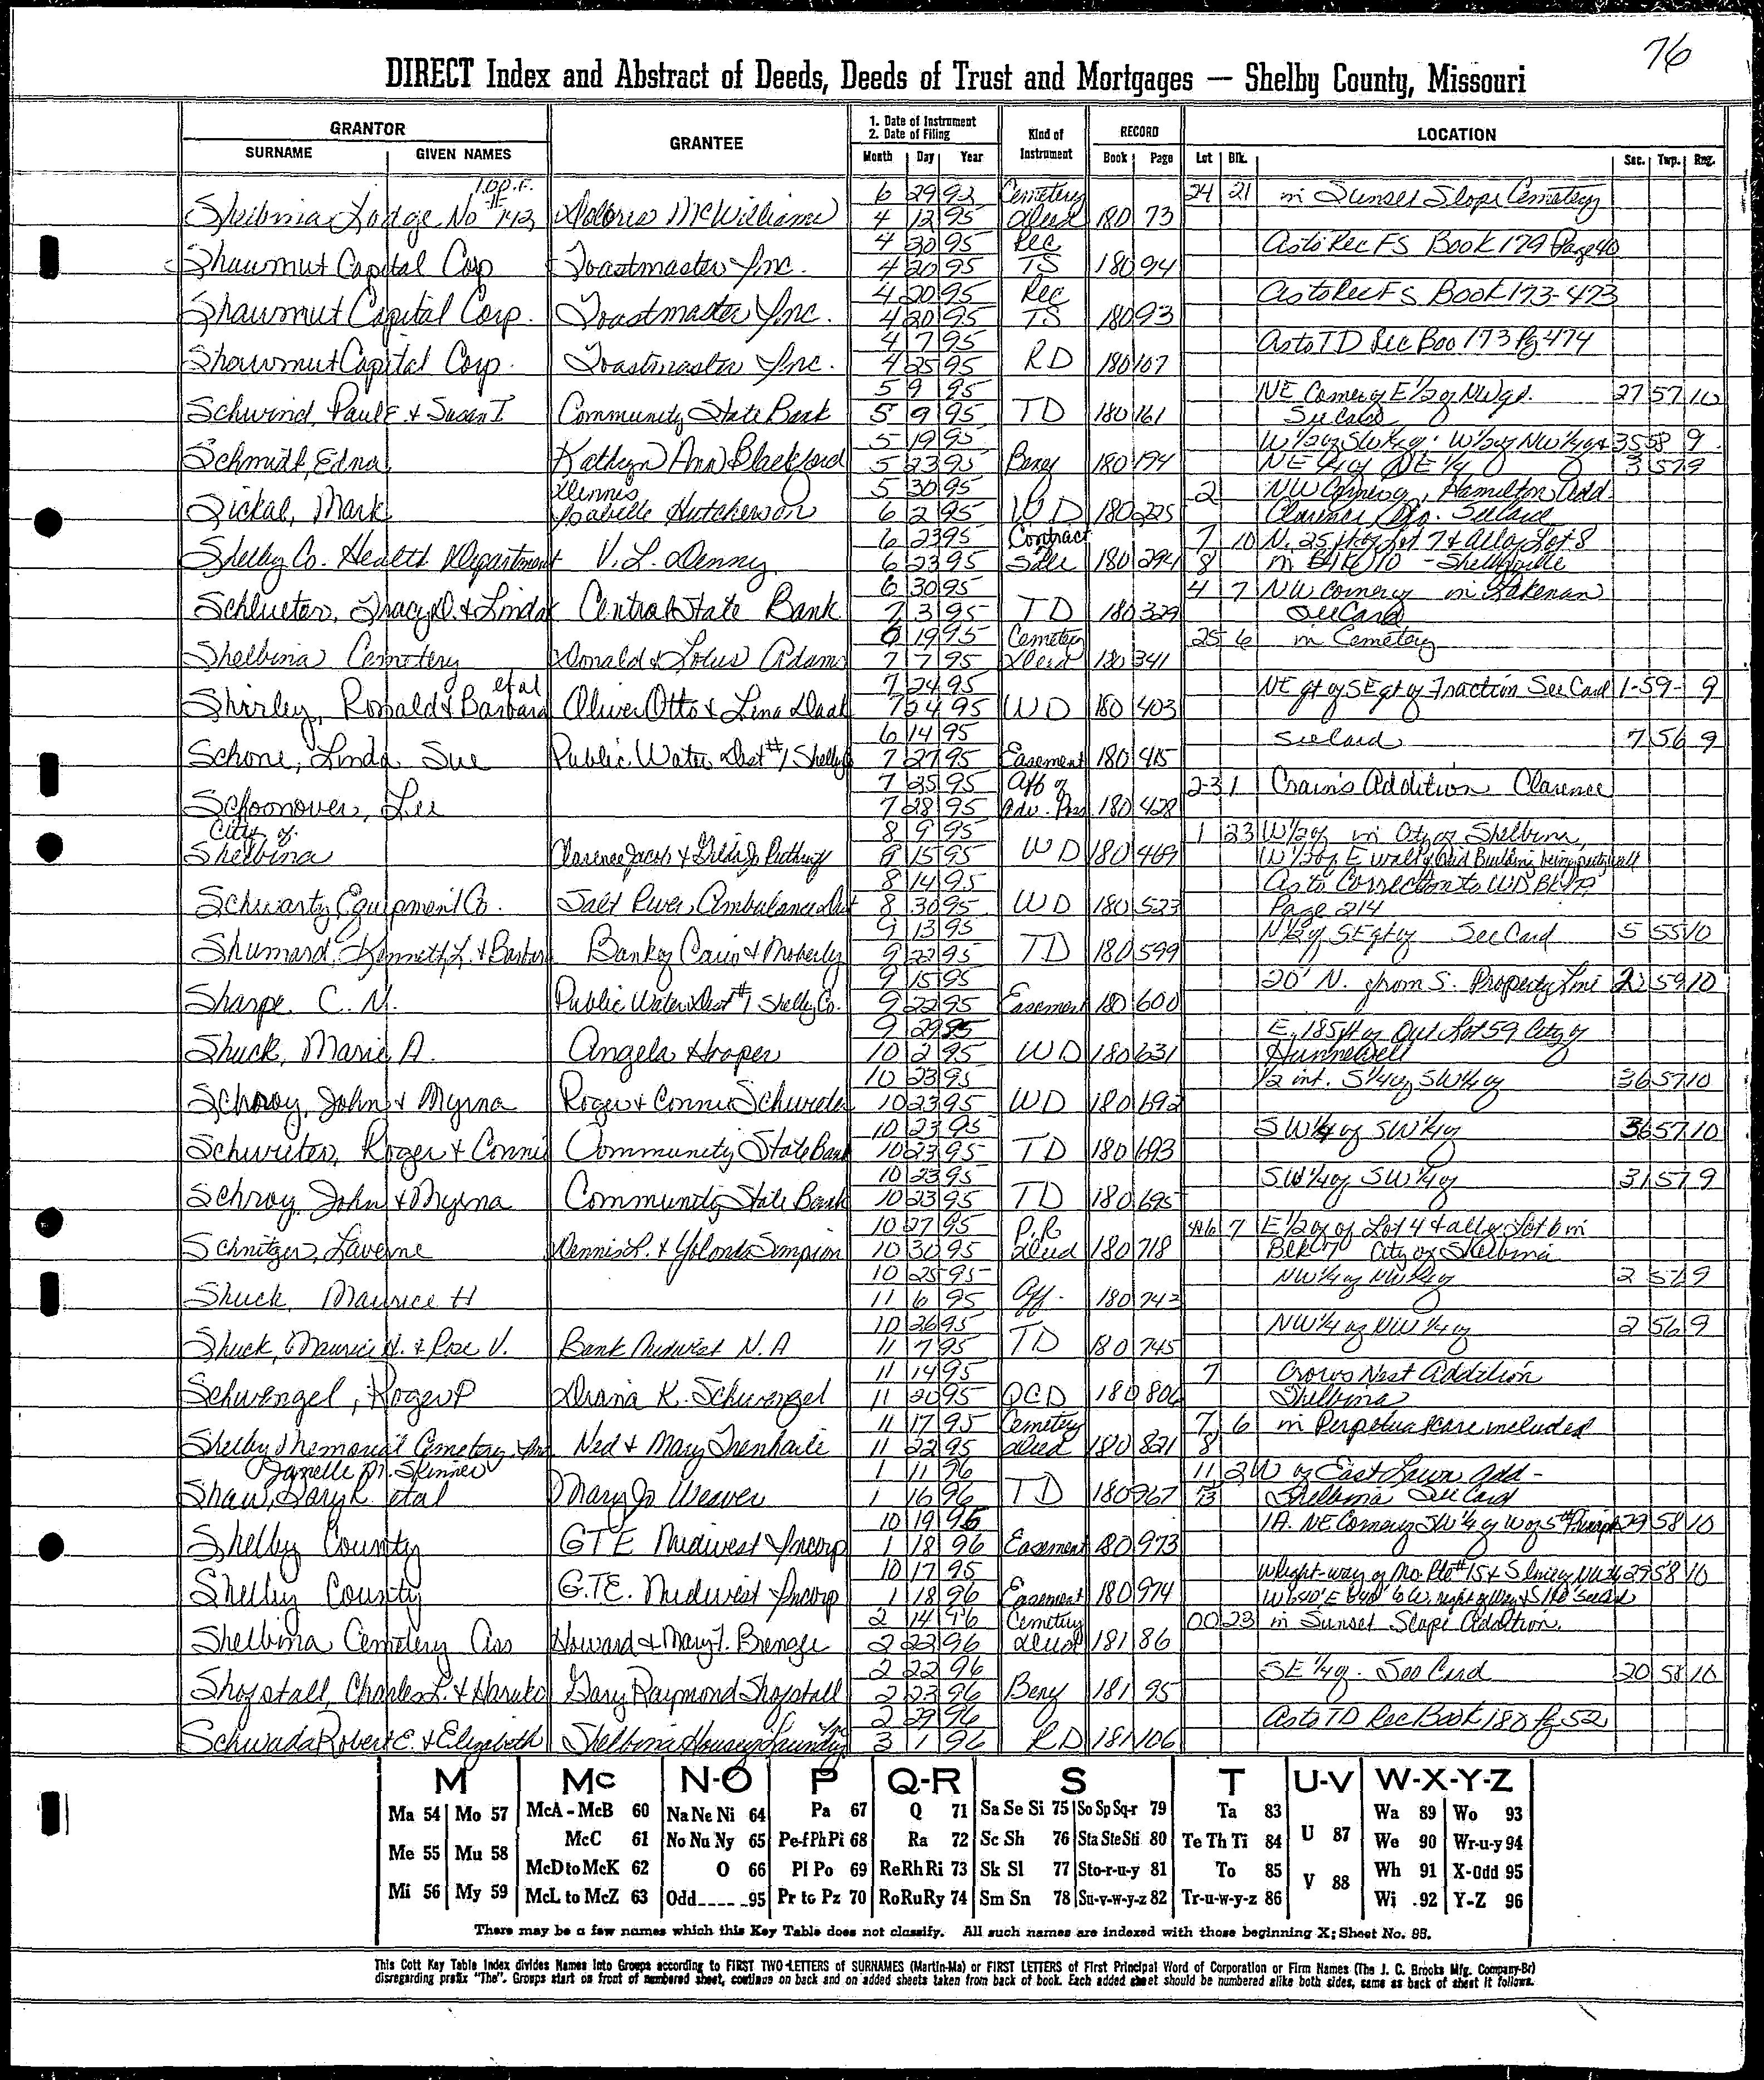 76
DIRECT Index and Abstract of Deeds, Deeds of Trust and Mortgages — Shelby County, Missouri
GRANTOR GRANTEE 1. Date of Instrument 2. Date of Filing Kind of Instrument RECORD LOCATION
SURNAME GIVEN NAMES Month Day Year Book Page Lot Blk. Sec. Twp. Rng.
I.O.O.F. 6 29 93 Cemetery 24 21 in Sunset Slope Cemetery
Shelbina Lodge No #142 Dolores McWilliams 4 12 95 Deed 180 73
4 20 95 Rec As to Rec FS Book 179 Page 40
Shawmut Capital Corp Toastmaster Inc. 4 20 95 TS 180 94
4 20 95 Rec As to Rec FS Book 173-473
Shawmut Capital Corp. Toastmaster Inc. 4 20 95 TS 180 93
4 7 95 As to TD Rec Boo 173 Pg 474
Shawmut Capital Corp. Toastmaster Inc. 4 25 95 RD 180 107
5 9 95 NE Corner of E 1/2 of NW qt. 27 57 10
Schwind, Paul E. & Susan I Community State Bank 5 9 95 TD 180 161 See Card
5 19 95 W 1/2 of SW 1/4 of W 1/2 of NW 1/4 of 35 58 9
Schmidt, Edna Kathryn Ann Blackford 5 23 95 Beny 180 194 NE 1/4 of NE 1/4 3 57 9
Dennis 5 30 95 2 NW Corner of, Hamilton Add
Sickal, Mark Isabelle Hutcherson 6 2 95 WD 180 225 Clarence, Mo. See Card
6 23 95 Contract 7 10 N. 25 ft of Lot 7 & all of Lot 8
Shelby Co. Health Department V. L. Denny 6 23 95 Sale 180 294 8 in Blk 10 - Shelbyville
6 30 95 4 7 NW corner of in Lakenan
Schlueter, Tracy D. & Linda Central State Bank 7 3 95 TD 180 329 See Card
6 19 95 Cemetery 25 6 in Cemetery
Shelbina Cemetery Donald & Lotus Adams 7 7 95 Deed 180 341
et al 7 24 95 NE qt of SE qt of Fraction See Card 1-59- 9
Shirley, Ronald & Barbara Oliver Otto & Lena Daal 7 24 95 WD 180 403
6 14 95 See Card 7 56 9
Schone, Linda Sue Public Water Dist #1 Shelby 7 27 95 Easement 180 415
7 25 95 Aff of 2-3 1 Crain's Addition Clarence
Schoonover, Lee 7 28 95 Adv. Poss 180 428
City of 8 9 95 1 23 W 1/2 of in City of Shelbina,
Shelbina Clarence Jacob & Hilda Jo Ruthruff 8 15 95 WD 180 469 W 1/2 of E wall of Said Building being party wall
8 14 95 As to Correction to WD Bk 179
Schwartz Equipment Co. Salt River Ambulance Dist 8 30 95 WD 180 523 Page 214
9 13 95 N 1/2 of SE qt of See Card 5 55 10
Shumard, Kenneth L. & Barbara Bank of Cairo & Moberly 9 22 95 TD 180 599
9 15 95 20' N. from S. Property Line 2 59 10
Sharpe, C. M. Public Water Dist #1 Shelby Co. 9 22 95 Easement 180 600
9 29 95 E. 185 ft of Out Lot 59 City of
Shuck, Marie A. Angela Hooper 10 2 95 WD 180 631 Hunnewell
10 23 95 1/2 int. S 1/4 of SW 1/4 of 36 57 10
Schroy, John & Myrna Roger & Connie Schwieter 10 23 95 WD 180 692
10 23 95 SW 1/4 of SW 1/4 of 36 57 10
Schwieter, Roger & Connie Community State Bank 10 23 95 TD 180 693
10 23 95 SW 1/4 of SW 1/4 of 31 57 9
Schroy, John & Myrna Community State Bank 10 23 95 TD 180 695
10 27 95 P.R. 4&6 7 E 1/2 of of Lot 4 & all of Lot 6 in
Schnitzer, Laverne Dennis L. & Yolonda Simpson 10 30 95 Deed 180 718 Blk 7 City of Shelbina
10 25 95 NW 1/4 of NW 1/4 of 2 57 9
Shuck, Maurice H 11 6 95 Aff. 180 743
10 26 95 NW 1/4 of NW 1/4 of 2 56 9
Shuck, Maurice H. & Rose V. Bank Midwest N.A 11 7 95 TD 180 745
11 14 95 7 Crows Nest Addition
Schwengel, Roger P Diana K. Schwengel 11 20 95 QCD 180 806 Shelbina
11 17 95 Cemetery 7 6 in Perpetual care included
Shelby Memorial Cemetery Ass Ned & Mary Trenhaile 11 22 95 Deed 180 821 8
Janelle M. Skinner 1 11 96 11 2 W of East Lawn Add-
Shaw, Daryl et al Mary Jo Weaver 1 16 96 TD 180 967 13 Shelbina See Card
10 19 95 1A. NE Corner of SW 1/4 of W of 5th Princp 29 58 10
Shelby County GTE Midwest Incorp 1 18 96 Easement 180 973
10 17 95 W Right-way of Mo. Rte #15 & S line of NW 1/4 29 58 10
Shelby County G.T.E. Midwest Incorp 1 18 96 Easement 180 974
2 14 96 Cemetery 00 23 in Sunset Slope Addition.
Shelbina Cemetery Ass Howard & Mary T. Brenge 2 22 96 Deed 181 86
2 22 96 SE 1/4 of. See Card 20 58 10
Shopstall, Charles L. & Haruko Gary Raymond Shopstall 2 23 96 Beny 181 95
2 29 96 As to TD Rec Book 180 Pg 52
Schwada Robert E. & Elizabeth Shelbina Housey Laundry Inc 3 1 96 RD 181 106
M Mc N-O P Q-R S T U-V W-X-Y-Z
Ma 54 Mo 57 McA - McB 60 Na Ne Ni 64 Pa 67 Q 71 Sa Se Si 75 So Sp Sq-r 79 Ta 83 Wa 89 Wo 93
Me 55 Mu 58 McC 61 No Nu Ny 65 Pe-f Ph Pi 68 Ra 72 Sc Sh 76 Sta Ste Sti 80 Te Th Ti 84 U 87 We 90 Wr-u-y 94
McD to McK 62 O 66 Pl Po 69 Re Rh Ri 73 Sk Sl 77 Sto-r-u-y 81 To 85 V 88 Wh 91 X-Odd 95
Mi 56 My 59 McL to McZ 63 Odd_____95 Pr to Pz 70 Ro Ru Ry 74 Sm Sn 78 Su-v-w-y-z 82 Tr-u-w-y-z 86 Wi .92 Y-Z 96
There may be a few names which this Key Table does not classify. All such names are indexed with those beginning X; Sheet No. 95.
This Cott Key Table Index divides Names into Groups according to FIRST TWO LETTERS of SURNAMES (Martin-Ma) or FIRST LETTERS of First Principal Word of Corporation or Firm Names (The J. C. Brooks Mfg. Company-Br)
disregarding prefix "The". Groups start on front of numbered sheet, continue on back and on added sheets taken from back of book. Each added sheet should be numbered alike both sides, same as back of sheet it follows.